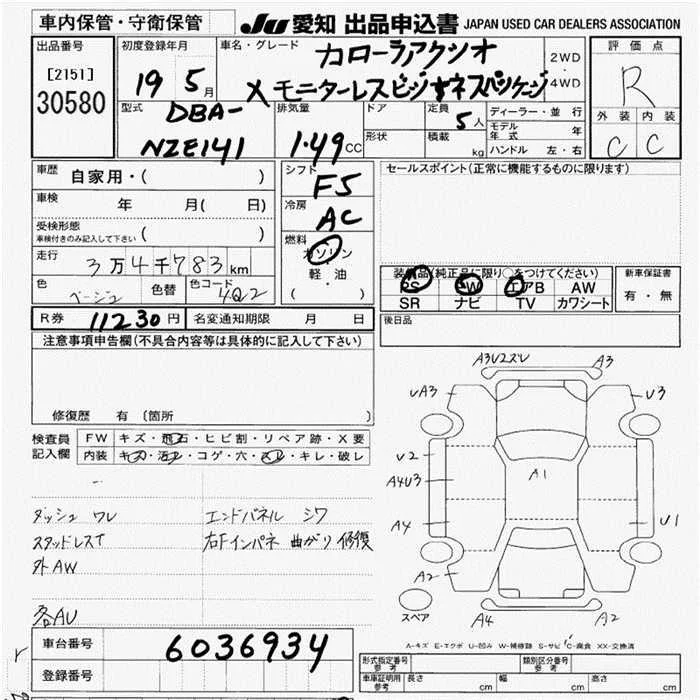 車内保管・守衛保管
JU 愛知 出品申込書 JAPAN USED CAR DEALERS ASSOCIATION
出品番号
[2151]
30580
初度登録年月
19 5月
車名・グレード
カローラアクシオ
X モニターレスビジネスパッケージ
2WD
・
4WD
評価点
R
外装 内装
C C
型式
DBA-
NZE141
排気量
1.49 CC
ドア
形状
定員
5人
積載
kg
ディーラー・並行
モデル年式 年
ハンドル 左・右
車歴 自家用・( )
車検 年 月( 日)
受検形態
車検付きのみ記入して下さい ( )
走行 3万4千783km
色 ベージュ 色替 色コード 4Q2
シフト
F5
冷房
AC
燃料
ガソリン
・
軽・油
( )
セールスポイント(正常に機能するものに限ります)
装備品(純正品に限り○をつけてください)
PS PW エアB AW
SR ナビ TV カワシート
新車保証書
有・無
R券 11230円 名変通知期限 月 日
後日品
注意事項申告欄(不具合内容等は具体的に記入して下さい)
修復歴 有〔箇所 〕
検査員記入欄
FW キズ・飛石・ヒビ割・リペア跡・X要
内装 キズ・汚レ・コゲ・穴・スレ・キレ・破レ
ダッシュ ワレ
スタッドレスT
外AW
各AU
エンドパネル シワ
右Fインパネ 曲がり 修復
A3U2ズレ
A3
UA3
U3
U2
A4U3
A1
A4
U1
A2
スペア
A4
A2
A-キズ E-エクボ U-凹み W-補修跡 S-サビ C-腐食 XX-交換済
車台番号 6036934
登録番号
形式指定番号
参考
類別区分番号
参考
車庫証明
参考
長さ cm 幅 cm 高さ cm